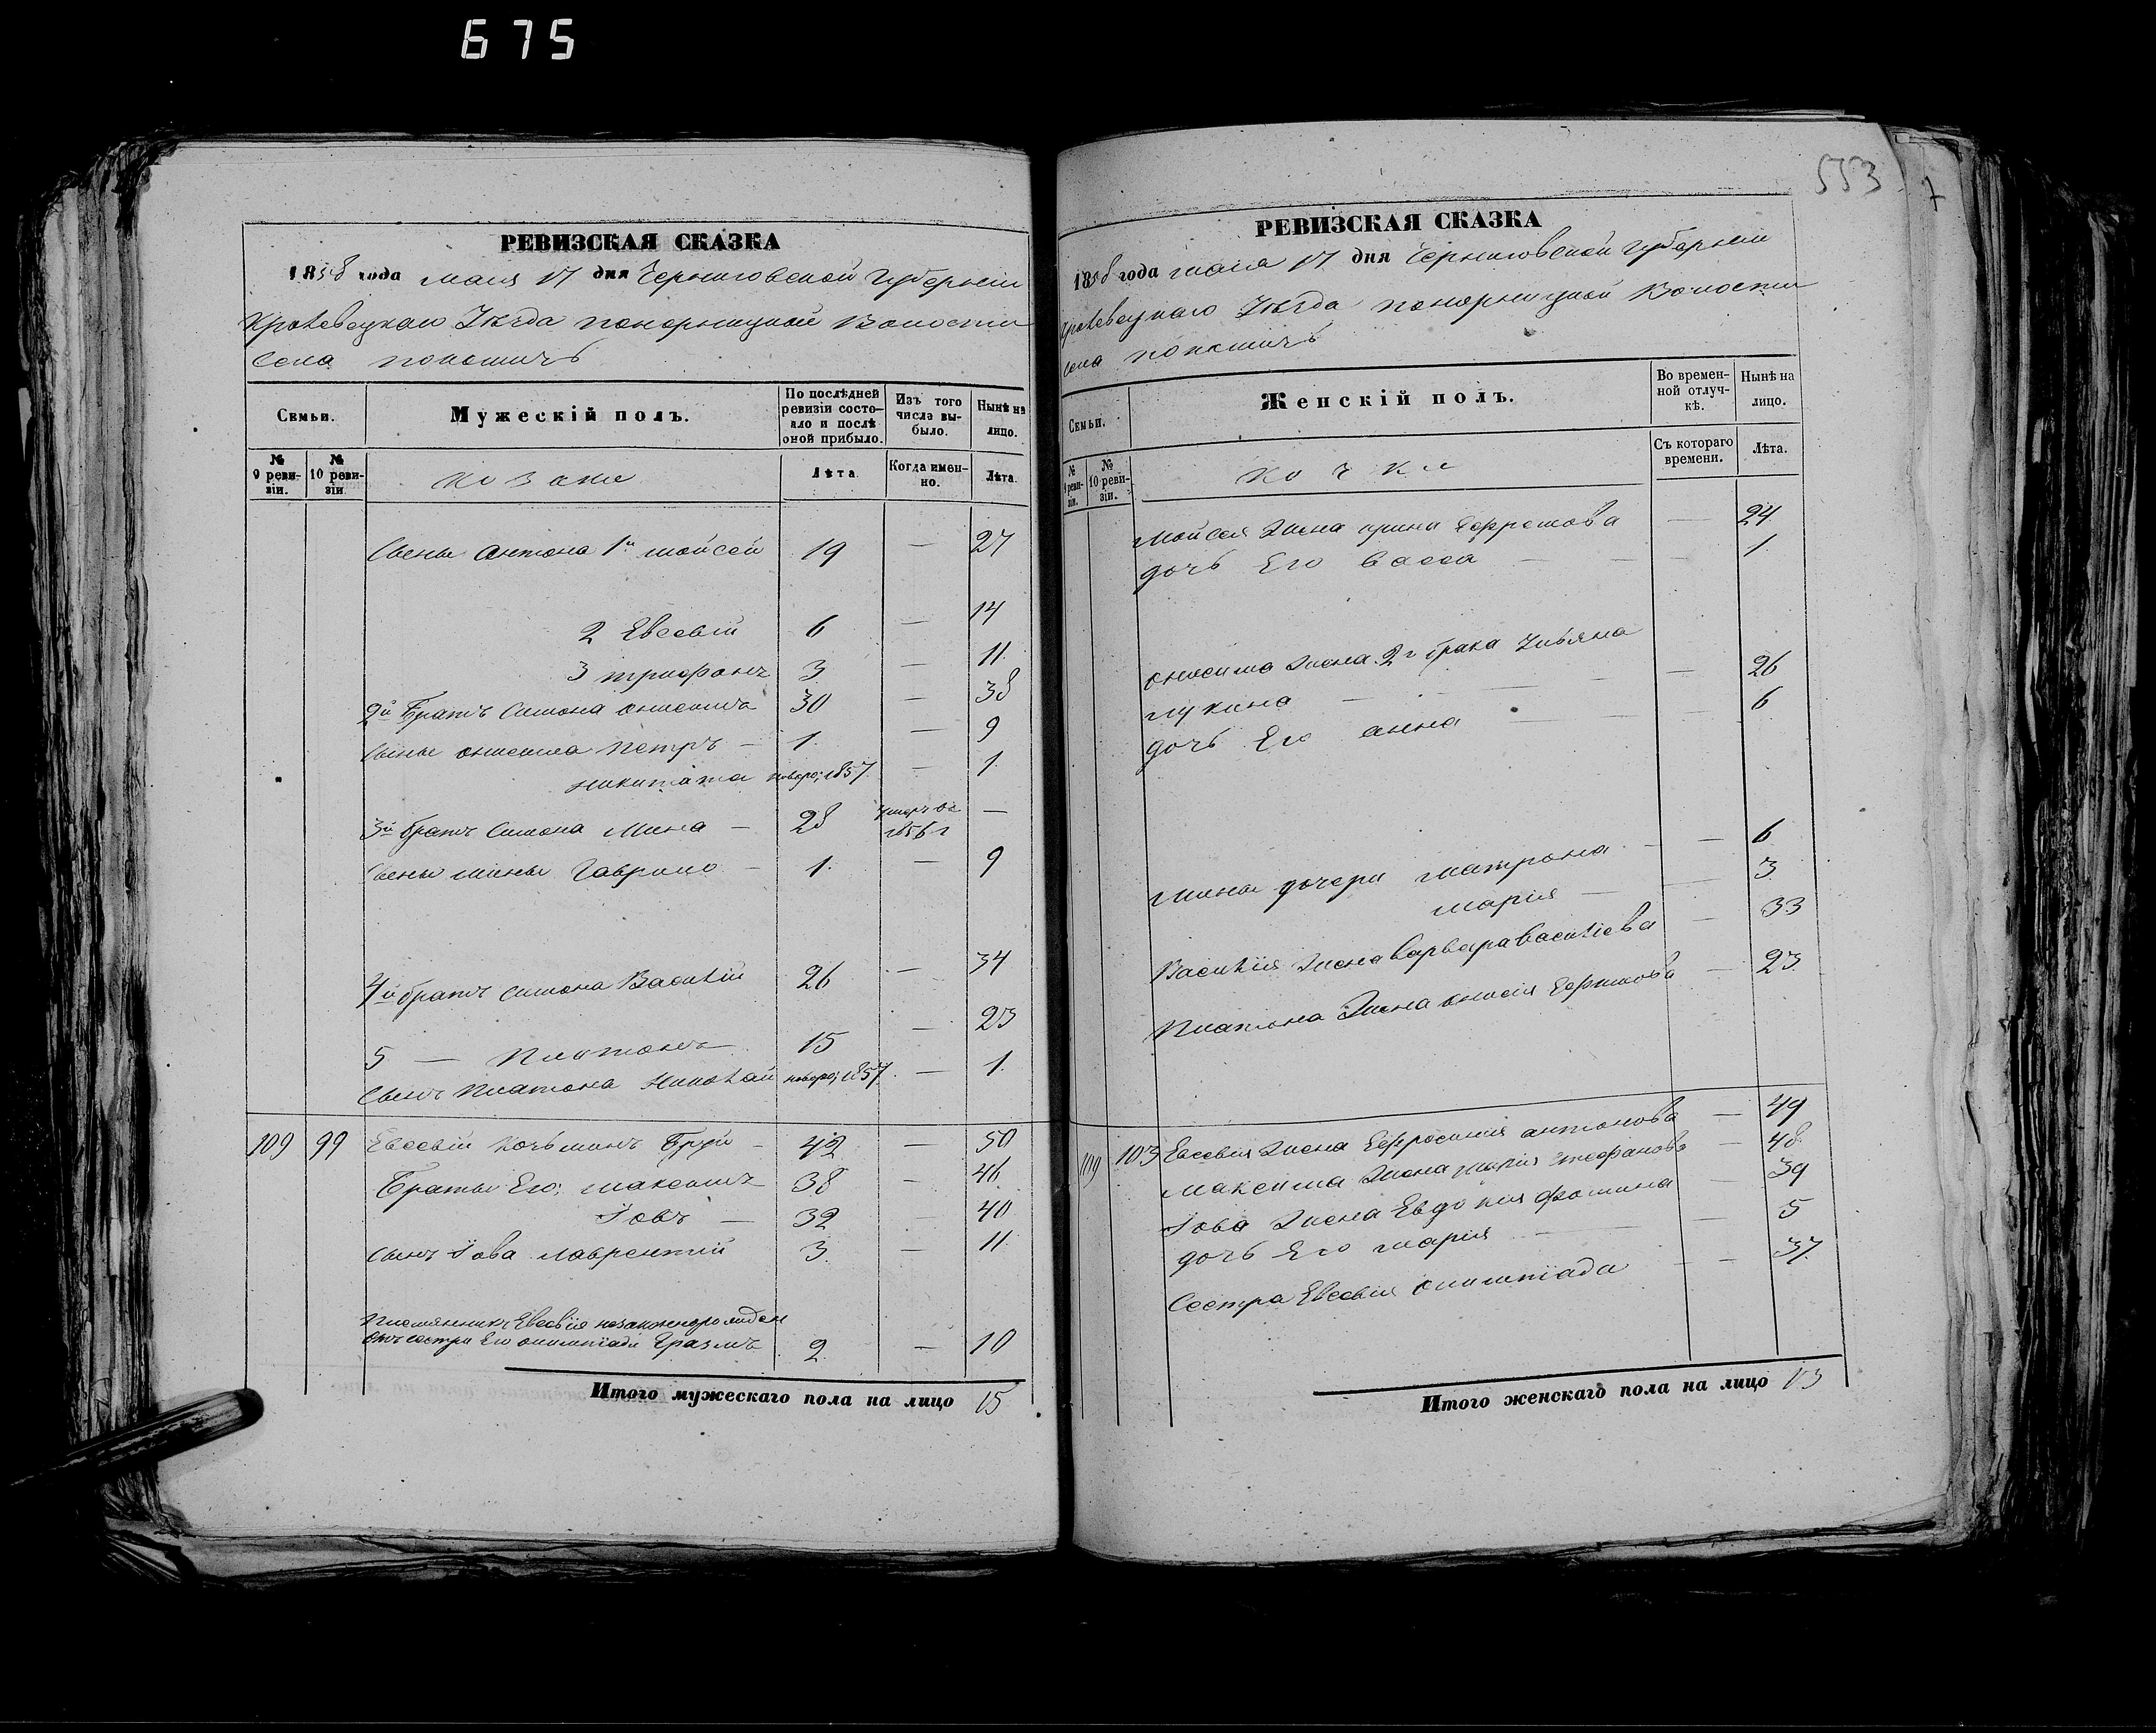 675
553
РЕВИЗСКАЯ СКАЗКА
1858 года мая 17 дня Черниговской губерніи
Кролевецкаго Уѣзда понорницкой волости
села
Семьи.
Мужескій полъ.
По послѣдней ревизіи состояло и послѣ оной прибыло.
Изъ того числа выбыло.
Нынѣ на лицо.
№ 9 ревизіи.
№ 10 ревизіи.
козаки
Лѣта.
Когда именно.
Лѣта.
Сыны антона 1й мойсей 19 — 27
2 Евсевій 6 — 14
3 трифонъ 3 — 11.
2й Братъ Симона онисимъ 30 — 38
Сыны онисима петръ — 1. — 9
никита новоро; 1857. — 1.
3й братъ Симона Мина — 28 1856 г —
Сыны мины Гаврило — 1. — 9
4й братъ симона Василій 26 — 34
5 — Платонъ 15 — 23
Сынъ платона Николай новоро; 1857. — 1.
109 99 Евсевій Бруй — 42 — 50
Братья Его; максимъ 38 — 46
Іовъ — 32 — 40
Сынъ Іова лаврентій 3. — 11
Племянникъ Евсевія
отъ сестры Его олимпіады Еразмъ 2 — 10
Итого мужескаго пола на лицо 15
РЕВИЗСКАЯ СКАЗКА
1858 года мая 17 дня Черниговской губерніи
Кролевецкаго Уѣзда понорницкой волости
села
Семьи.
Женскій полъ.
Во временной отлучкѣ.
Нынѣ на лицо.
№ 9 ревизіи.
№ 10 ревизіи.
Съ котораго времени.
Лѣта.
Мойсея жена ирина Ефремова — 24
дочь Его васса — — 1.
онисима жена 2г брака Ульяна
лукина — — — 26
дочь Его анна — — 6
мины дочери матрона — — 6
марія — — 3
Василія жена варвара васильева — 33
Платона жена онисія — 23
109 103 Евсевія жена Ефросинія антонова — 49
максима жена марія — 48.
Іова жена Евдокія фомина — 39
дочь Его марія — — 5
Сестра Евсевія олимпіада — — 37
Итого женскаго пола на лицо 13